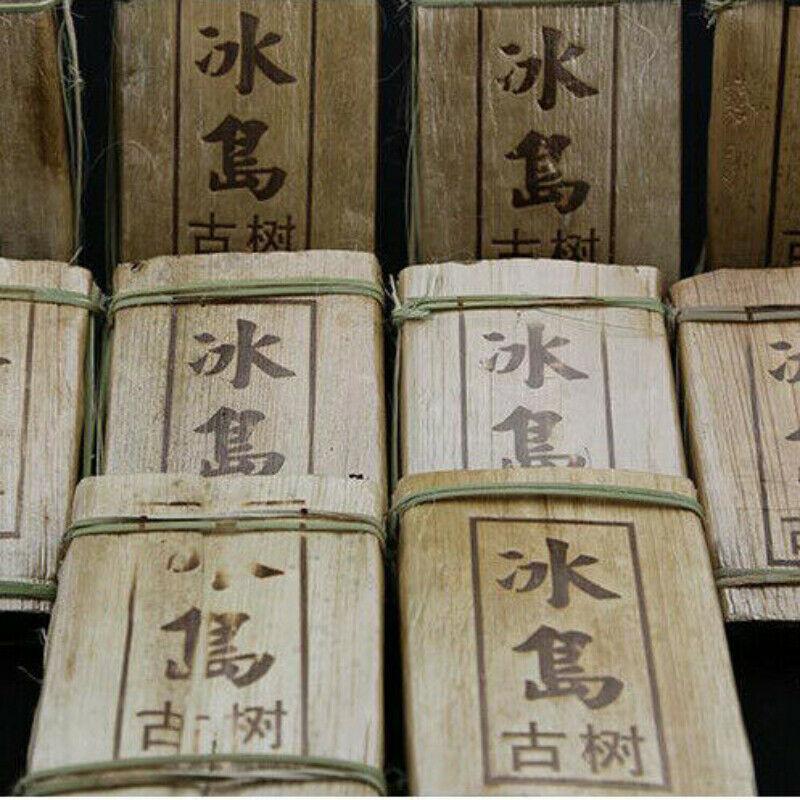 冰島
古树
冰島
古树
冰島
冰島
冰
島
古树
冰島
古树